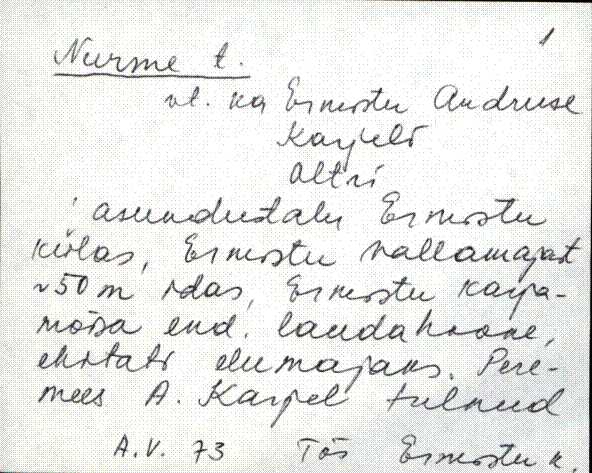 1
Nurme t.
vt. ka Ermistu Andruse
Karjeli
Oltri
asundustalu Ermistu
külas, Ermistu vallamajast
~50 m idas, Ermistu karja-
mõisa end. laudahoone,
ehitati elumajaks. Pere-
mees A. Karjel tulnud
A.V. 73 Tõs Ermistu k.